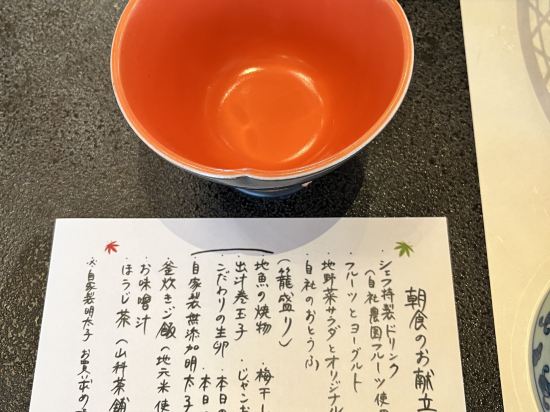 朝食のお献立
・シェフ特製ドリンク
(自社農園フルーツ使用
・フルーツとヨーグルト
・地野菜サラダとオリジナル
・自社のおとうふ
(籠盛り)
・地魚の焼物 ・梅干し
・出汁巻玉子 ・じゃこ
・こだわりの生卵 ・本日の
・自家製無添加明太子 ・本日
・釜炊きご飯(地元米使
・お味噌汁
・ほうじ茶(山科茶舗
※自家製明太子 お買い求め